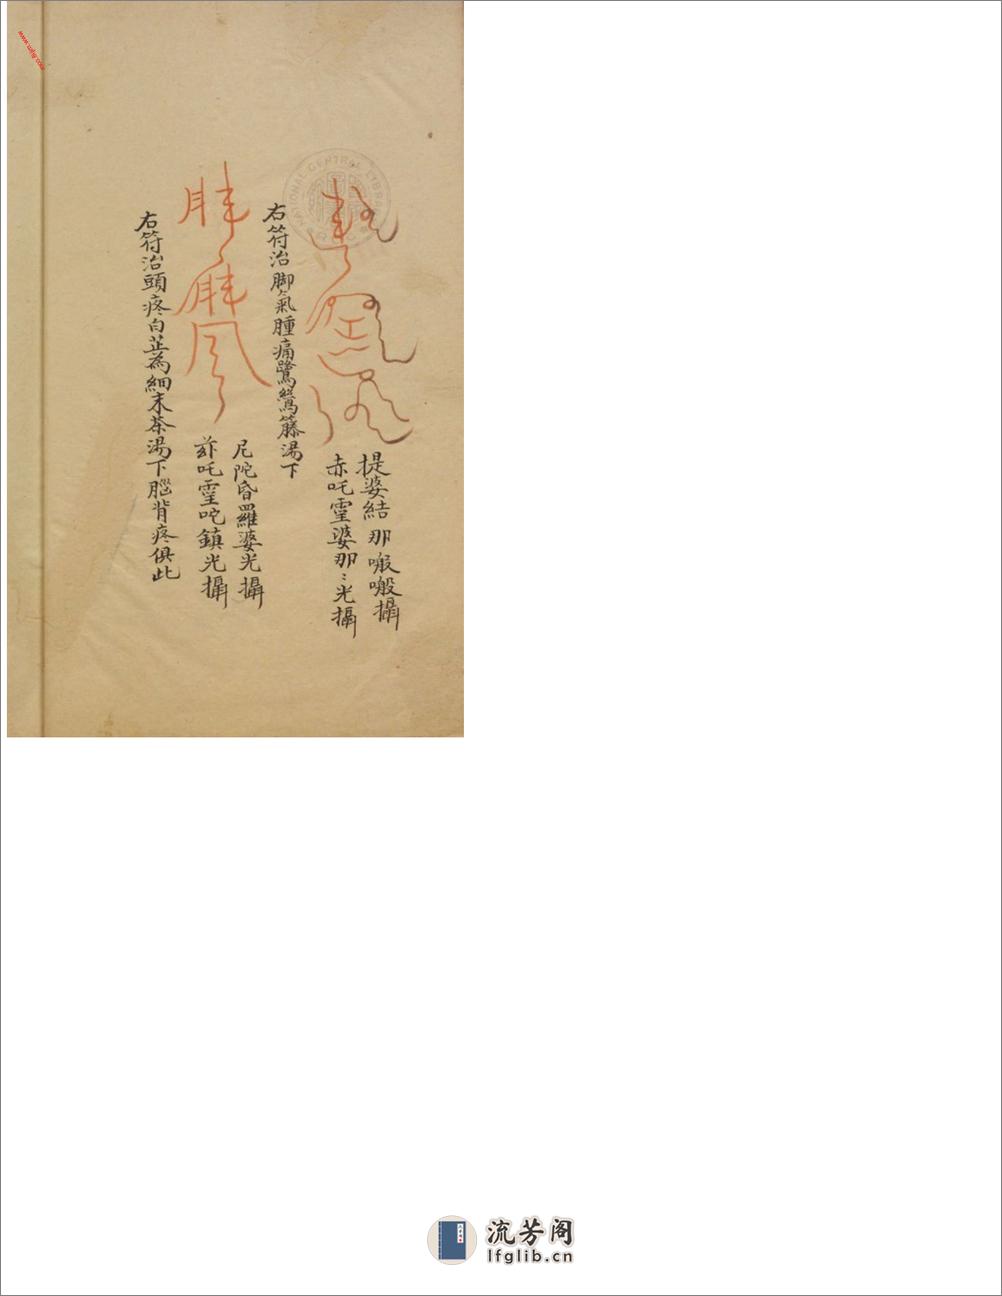 提婆結那㗘㗘攝
赤吒䨩婆那〻光攝
右符治脚氣腫痛鷺鷥籐湯下
尼陀昏羅婆光攝
茲吒䨩咜鎮光攝
右符治頭疼白芷為細末茶湯下腦背疼俱此
NATIONAL CENTRAL LIBRARY
流芳阁
lfglib.cn